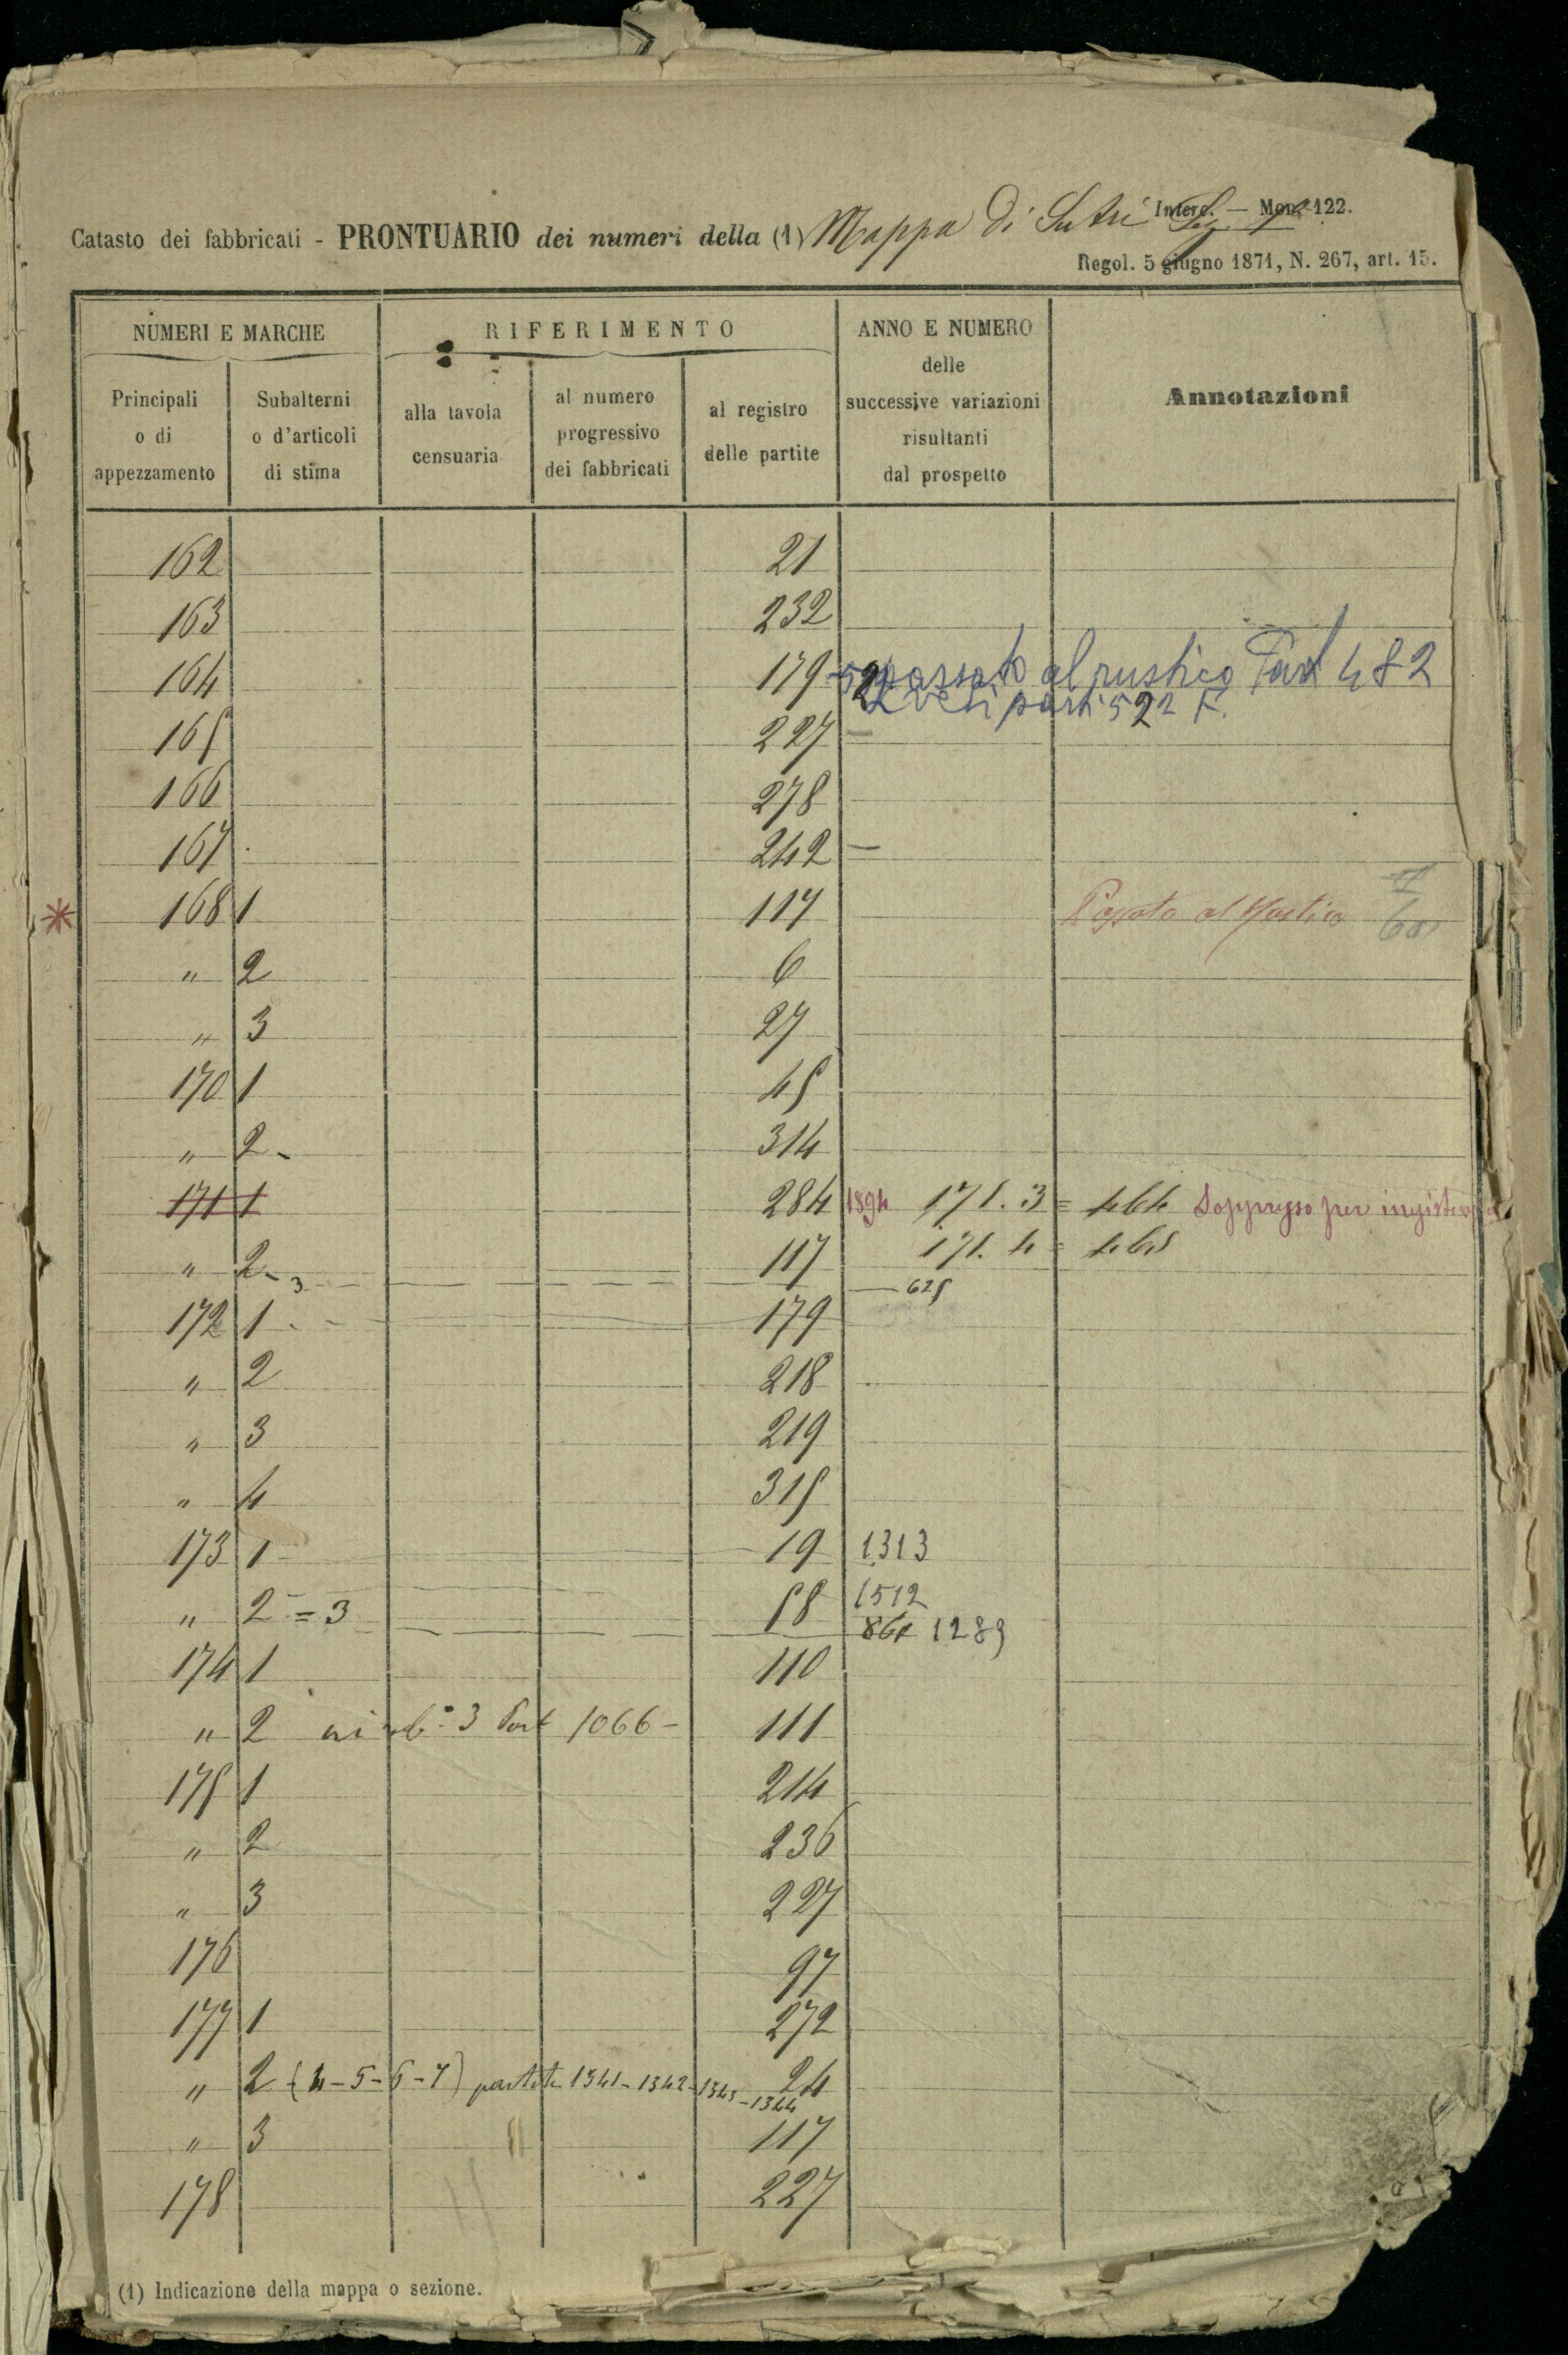 Interc. — Mon. 122.
Catasto dei fabbricati - PRONTUARIO dei numeri della (1) Mappa di Sutri
Regol. 5 giugno 1871, N. 267, art. 15.
NUMERI E MARCHE
RIFERIMENTO
ANNO E NUMERO delle successive variazioni risultanti dal prospetto
Annotazioni
Principali o di appezzamento
Subalterni o d'articoli di stima
alla tavola censuaria
al numero progressivo dei fabbricati
al registro delle partite
162 21
163 232
164 179 passato al rustico Part 482
parti 522 F.
165 227 —
166 278
167 242 —
168 1 117 Passato al Rustico
" 2 6
" 3 27
170 1 45
" 2 - 314
171 1 284 1894 171.3 = 464 Soppresso per
" 2 - 3 117 171.4 = 465
— 625
172 1 179
" 2 218
" 3 219
" 4 315
173 1 19 1313
" 2 = 3 58 1512
861 1289
174 1 110
" 2 3 Part 1066 - 111
175 1 214
" 2 236
" 3 227
176 97
177 1 272
" 2 (4-5-6-7) partite 1341-1342-1343-1344 24
" 3 117
178 227
(1) Indicazione della mappa o sezione.